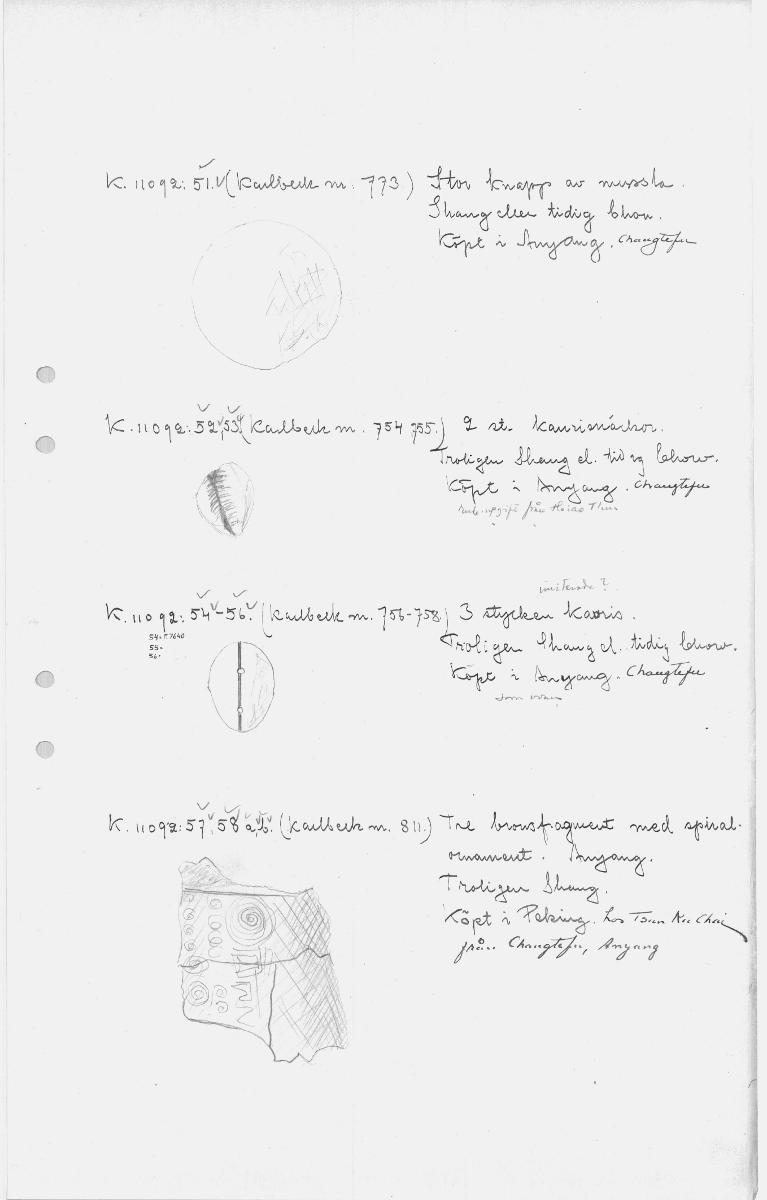 K. 11092: 51. (Karlbeck nr. 773) Stor knapp av mussla.
Shang eller tidig Chou.
Köpt i Anyang. Changtefu
K. 11092: 52, 53. (Karlbeck nr. 754 755.) 2 st. kaurisnäckor.
Troligen Shang el. tidig Chow.
Köpt i Anyang. Changtefu
uppgift från Hsiao T'un
imiterade?
K. 11092: 54-56. (Karlbeck nr. 756-758) 3 stycken Kauris.
54.
55.
56.
Troligen Shang el. tidig Chow.
Köpt i Anyang. Changtefu
som ovan
K. 11092: 57, 58 a, b. (Karlbeck nr. 811.) Tre bronsfragment med spiral-
ornament. Anyang.
Troligen Shang.
Köpt i Peking. hos Tsun Ku Chai
från Changtefu, Anyang